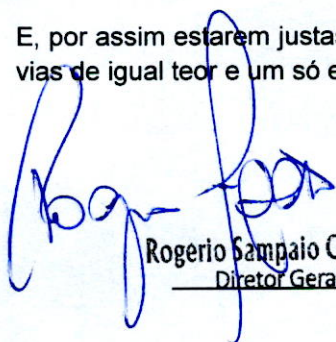 E, por assim estarem justa
vias de igual teor e um só e
Rogerio Sampaio C
Diretor Gera